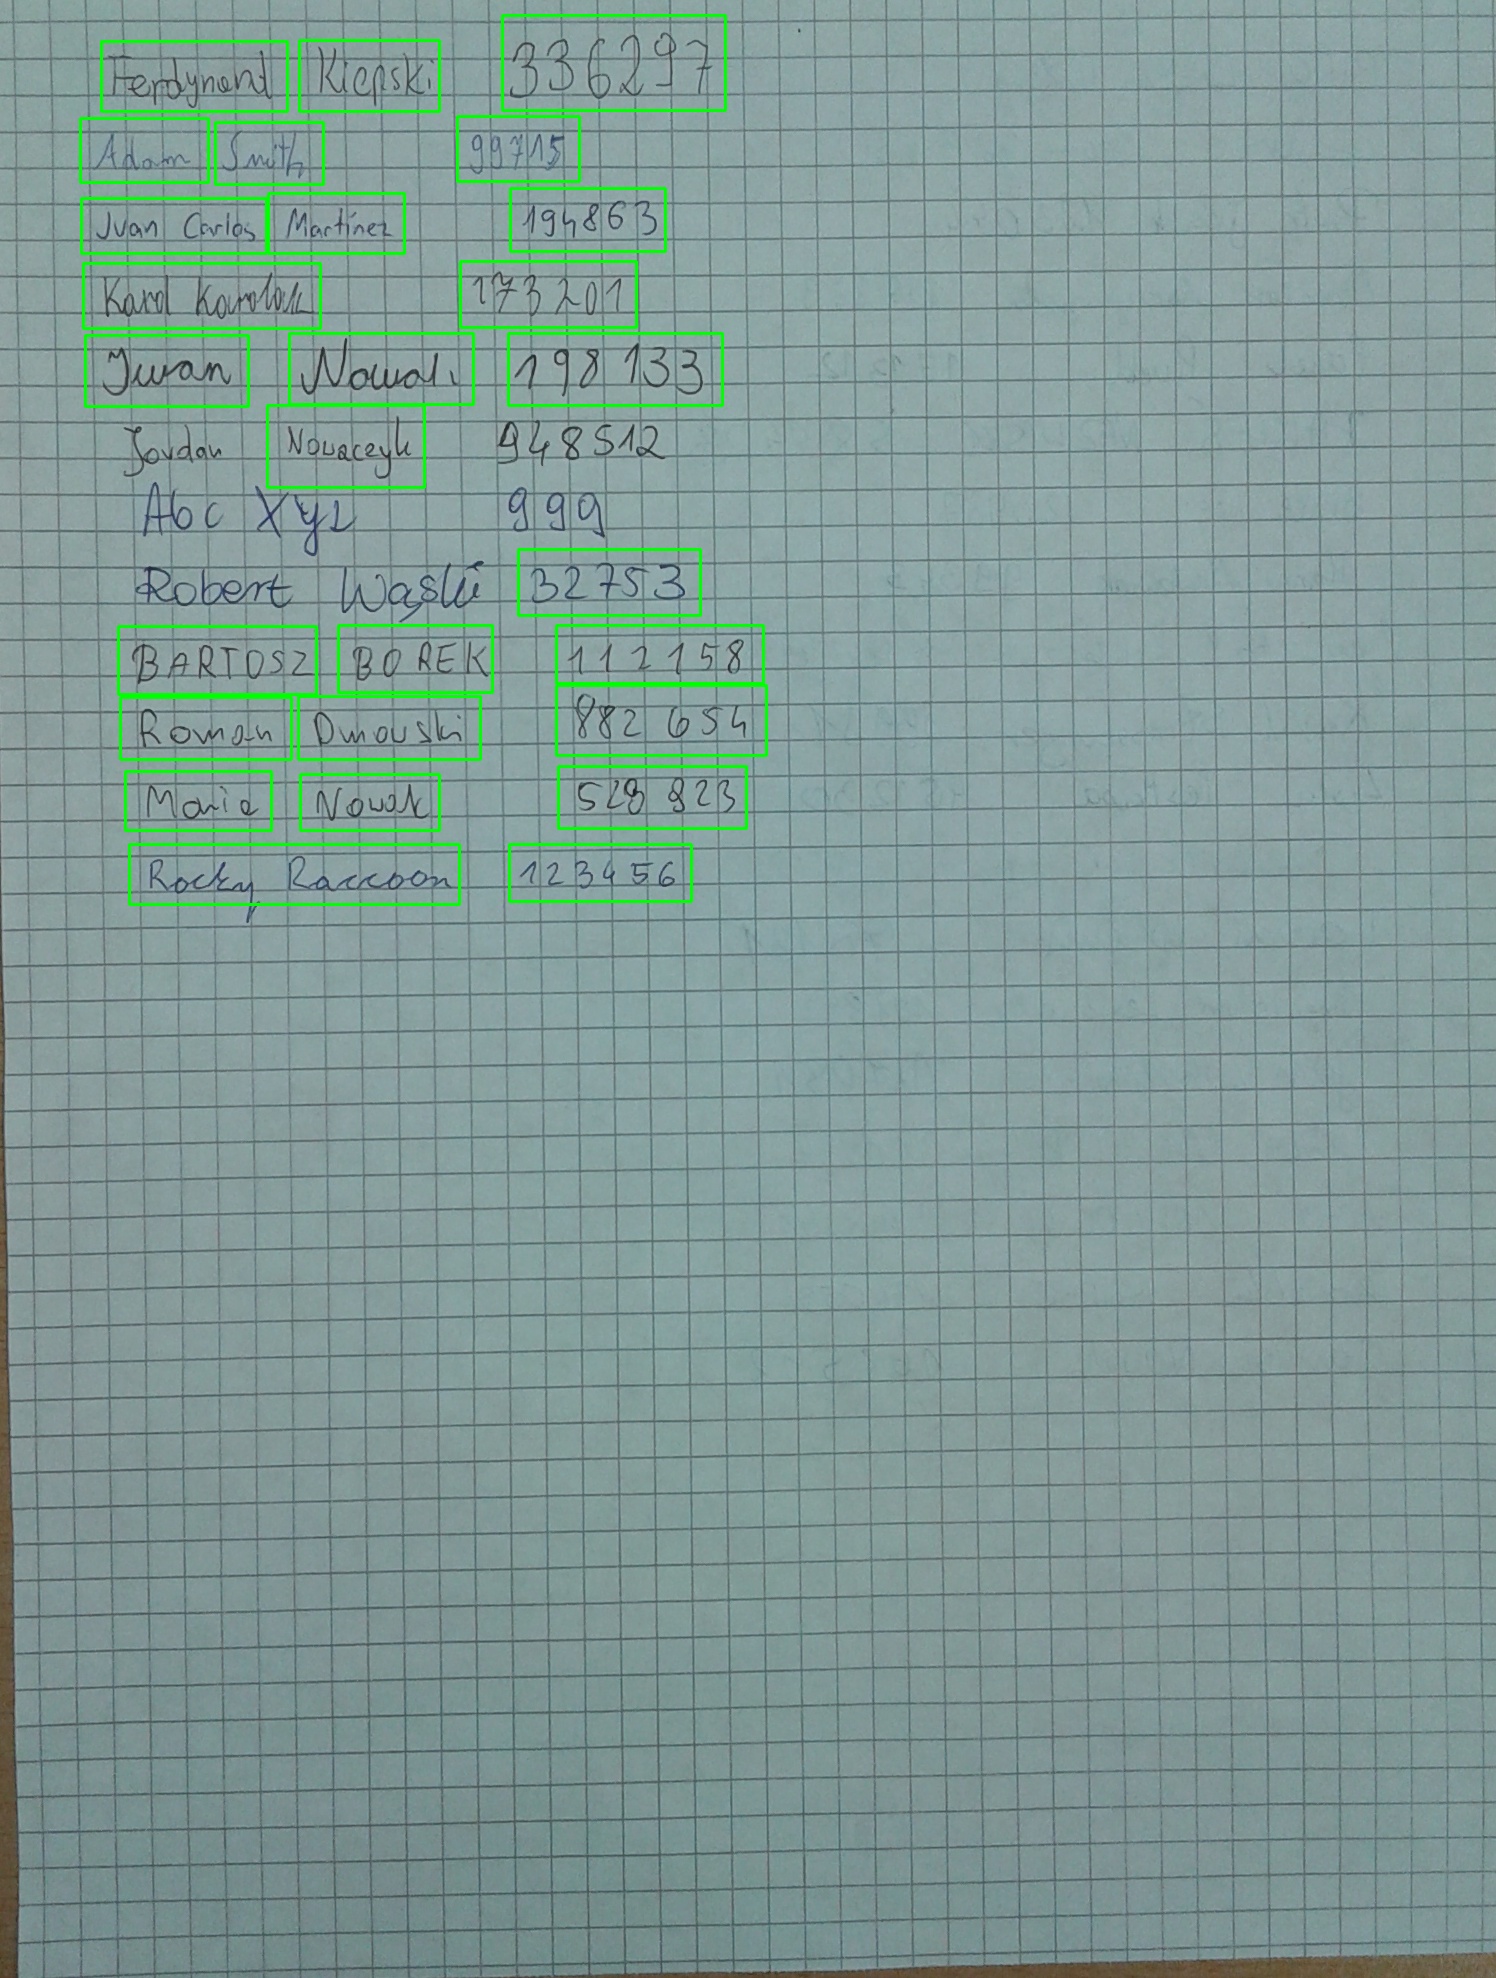 Ferdynand Kiepski 336297
Adam Smith 99715
Juan Carlos Martínez 194863
Karol Karolak 173201
Iwan Nowak 198 133
Jordan Nowaczyk 948512
Abc Xyz 999
Robert Wąski 32753
BARTOSZ BOREK 112158
Roman Dmowski 882 654
Maria Nowak 528 823
Rocky Raccoon 123456